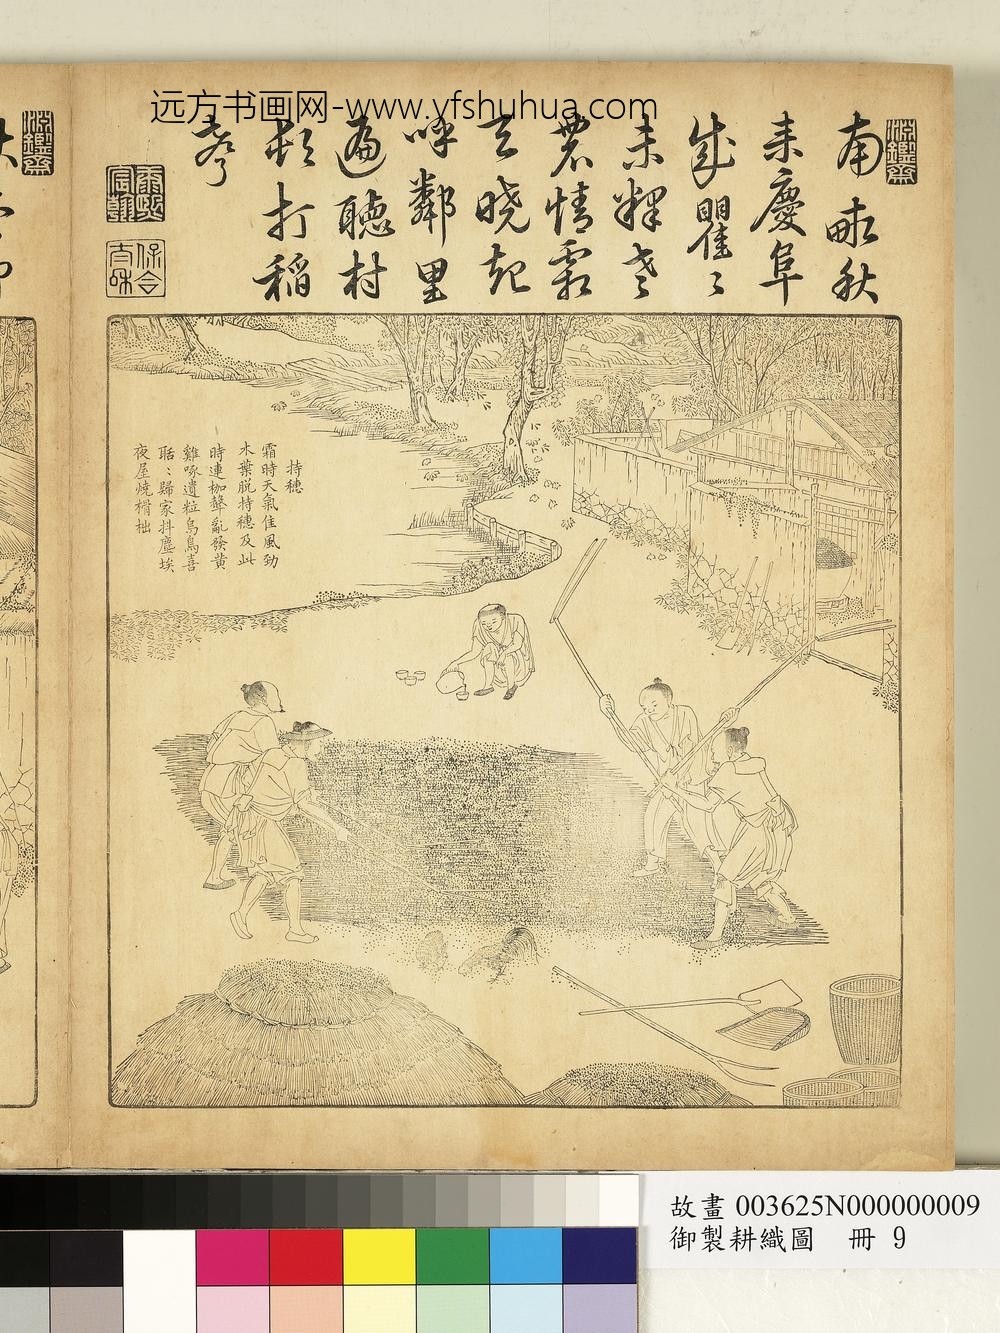 远方书画网-www.yfshuhua.com
淵鑑齋
南畝秋
来慶阜
成瞿〻
未釋老
農情霜
天曉起
呼鄰里
遍聽村
村打稻
聲
康熙宸翰
保合太和
淵鑑齋
持穗
霜時天氣佳風勁
木葉脫持穗及此
時連枷聲亂發黃
雞啄遺粒烏鳥喜
聒〻歸家抖塵埃
夜屋燒榾柮
故畫 003625N000000009
御製耕織圖 冊 9